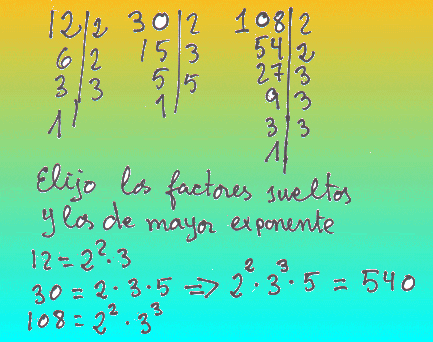 12|2 30|2 108|2
6|2 15|3 54|2
3|3 5|5 27|3
1| 1| 9|3
3|3
1|
Elijo los factores sueltos
y los de mayor exponente
12 = 2²·3
30 = 2·3·5 => 2²·3³·5 = 540
108 = 2²·3³